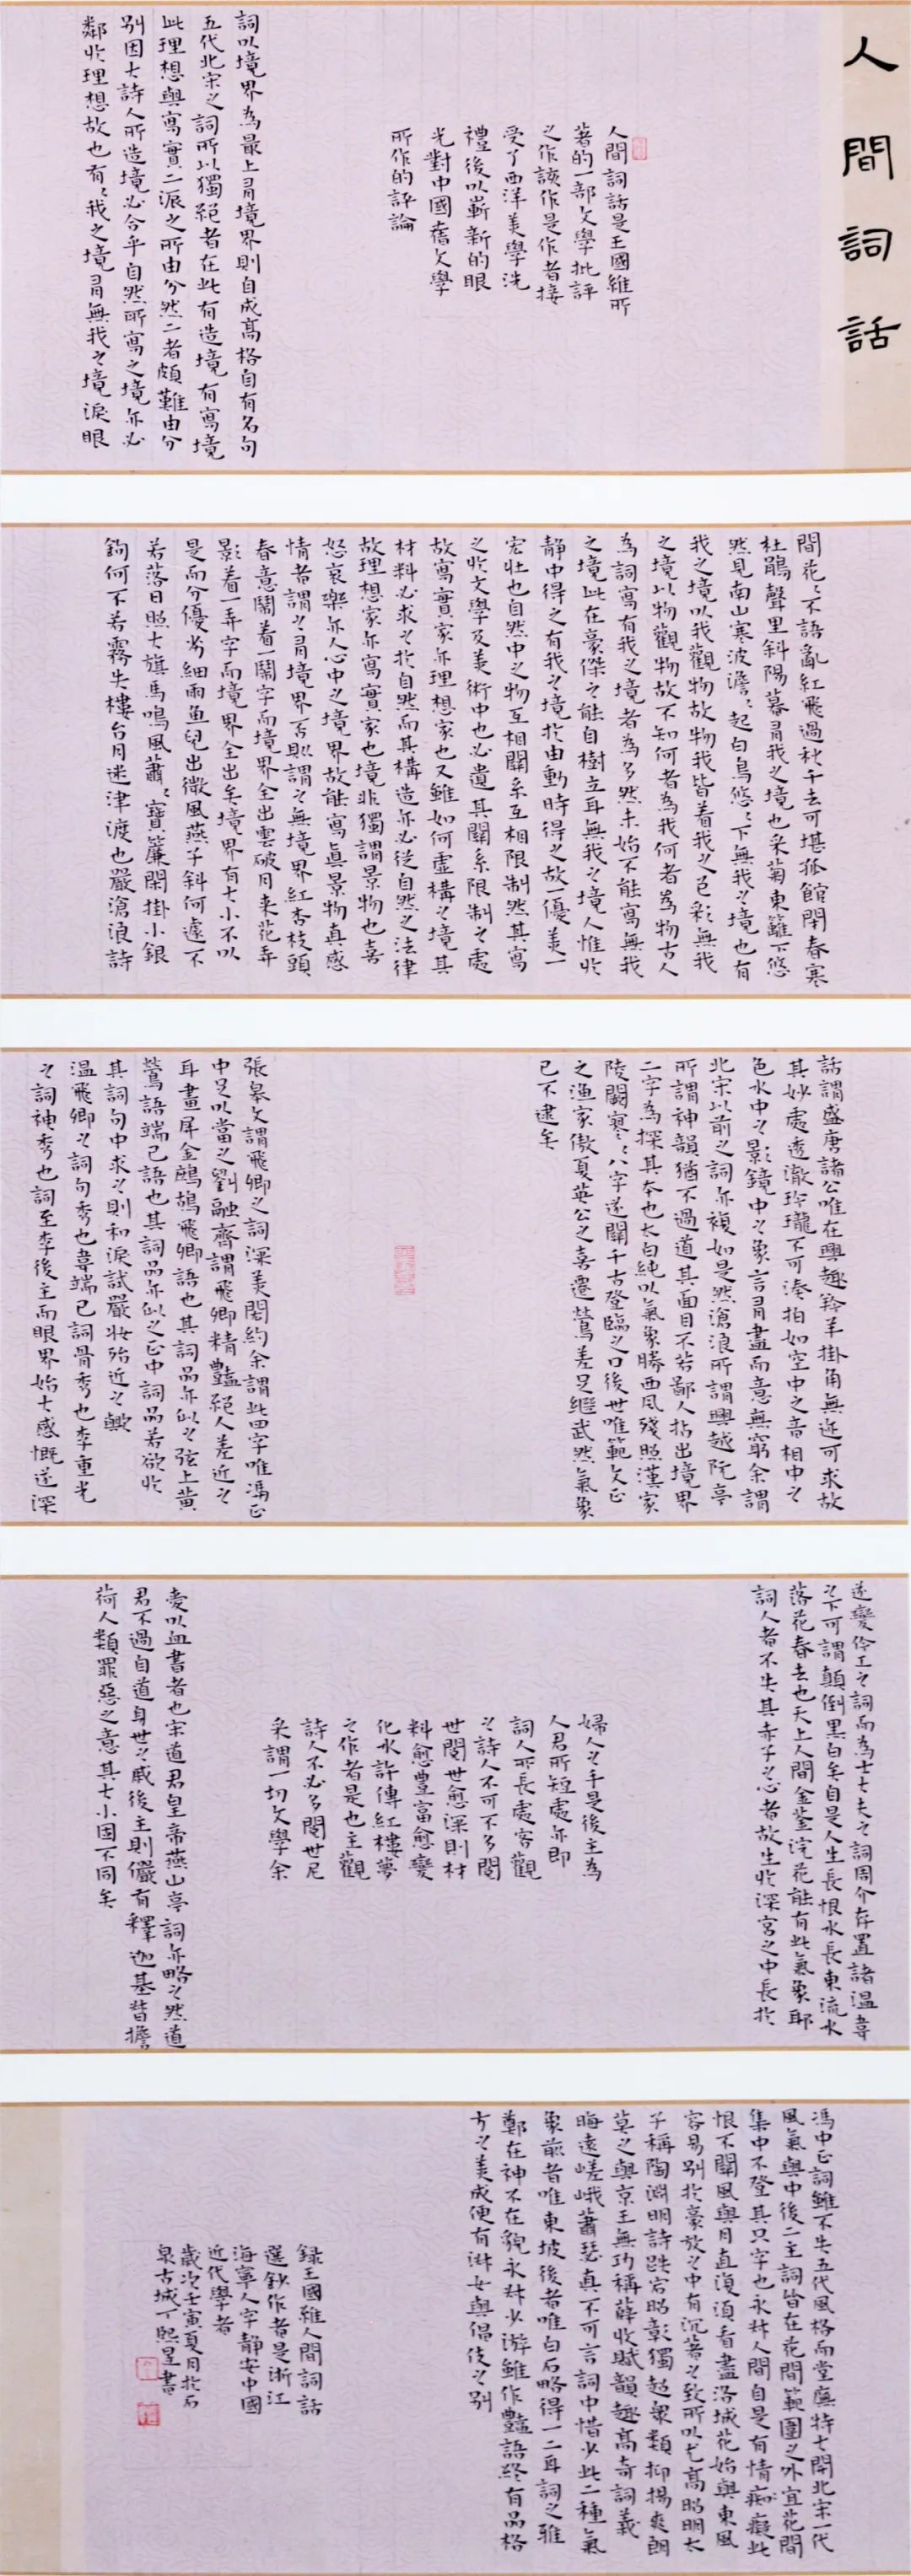 人間詞話
人間詞話是王國維所
著的一部文學批評
之作該作是作者接
受了西洋美學洗
禮後以嶄新的眼
光對中國舊文學
所作的評論
詞以境界為最上有境界則自成高格自有名句
五代北宋之詞所以獨絕者在此有造境有寫境
此理想與寫實二派之所由分然二者頗難由分
別因大詩人所造境必合乎自然所寫之境亦必
鄰於理想故也有〻我之境有無我之境淚眼
問花〻不語亂紅飛過秋千去可堪孤館閉春寒
杜鵑聲里斜陽暮有我之境也采菊東籬下悠
然見南山寒波澹〻起白鳥悠〻下無我之境也有
我之境以我觀物故物我皆着我之色彩無我
之境以物觀物故不知何者為我何者為物古人
為詞寫有我之境者為多然未始不能寫無我
之境此在豪傑之能自樹立耳無我之境人惟於
靜中得之有我之境於由動時得之故一優美一
宏壯也自然中之物互相關系互相限制然其寫
之於文學及美術中也必遺其關系限制之處
故寫實家亦理想家也又雖如何虛構之境其
材料必求之於自然而其構造亦必從自然之法律
故理想家亦寫實家也境非獨謂景物也喜
怒哀樂亦人心中之境界故能寫真景物真感
情者謂之有境界否則謂之無境界紅杏枝頭
春意鬧着一鬧字而境界全出雲破月来花弄
影着一弄字而境界全出矣境界有大小不以
是而分優劣細雨魚兒出微風燕子斜何遽不
若落日照大旗馬鳴風蕭〻寶簾閑掛小銀
鉤何不若霧失樓台月迷津渡也嚴滄浪詩
話謂盛唐諸公唯在興趣羚羊掛角無迹可求故
其妙處透澈玲瓏不可湊拍如空中之音相中之
色水中之影鏡中之象言有盡而意無窮余謂
北宋以前之詞亦複如是然滄浪所謂興越阮亭
所謂神韻猶不過道其面目不若鄙人拈出境界
二字為探其本也太白純以氣象勝西風殘照漢家
陵闕寥〻八字遂關千古登臨之口後世唯範文正
之漁家傲夏英公之喜遷鶯差足繼武然氣象
已不逮矣
張皋文謂飛卿之詞深美閎約余謂此四字唯馮正
中足以當之劉融齋謂飛卿精豔絕人差近之
耳畫屏金鷓鴣飛卿語也其詞品亦似之弦上黃
鶯語端己語也其詞品亦似之正中詞品若欲於
其詞句中求之則和淚試嚴妝殆近之歟
溫飛卿之詞句秀也韋端已詞骨秀也李重光
之詞神秀也詞至李後主而眼界始大感慨遂深
遂變伶工之詞而為士大夫之詞周介存置諸溫韋
之下可謂顛倒黑白矣自是人生長恨水長東流水
落花春去也天上人間金荃浣花能有此氣象耶
詞人者不失其赤子之心者故生於深宮之中長於
婦人之手是後主為
人君所短處亦即
詞人所長處客觀
之詩人不可不多閱
世閱世愈深則材
料愈豐富愈變
化水許傳紅樓夢
之作者是也主觀
詩人不必多閱世尼
采謂一切文學余
愛以血書者也宋道君皇帝燕山亭詞亦略之然道
君不過自道身世之戚後主則儼有釋迦基督擔
荷人類罪惡之意其大小固不同矣
馮中正詞雖不失五代風格而堂廡特大開北宋一代
風氣與中後二主詞皆在花間範圍之外宜花間
集中不登其只字也永叔人間自是有情痴癡此
恨不關風與月直須須看盡洛城花始與東風
容易別於豪放之中有沉著之致所以尤高昭明太
子稱陶淵明詩跌宕昭彰獨超衆類抑揚爽朗
莫之與京王無功稱薛收賦韻趣高奇詞義
晦遠嵯峨蕭瑟真不可言詞中惜少此二種氣
象前者唯東坡後者唯白石略得一二耳詞之雅
鄭在神不在貌永叔少游雖作豔語終有品格
方之美成便有淑女與倡伎之別
録王國維人間詞話
選鈔作者是浙江
海寧人字靜安中國
近代學者
歲次壬寅夏月於石
泉古城丁熙星書